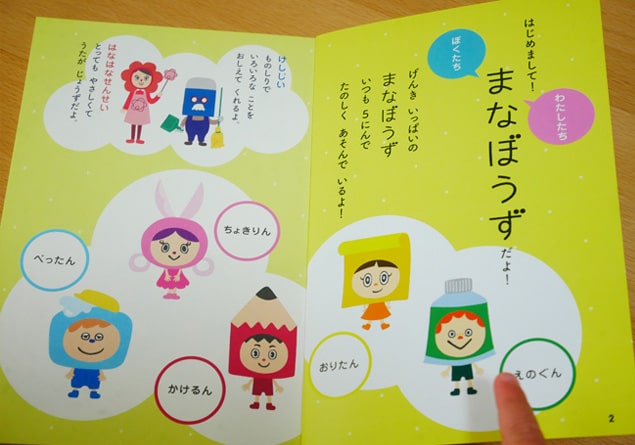 はじめまして!
ぼくたち
わたしたち
まなぼうず
だよ!
げんき いっぱいの
まなぼうず
いつも 5にんで
たのしく あそんで いるよ!
おりたん
えのくん
2
けしじい
ものしりで
いろいろな ことを
おしえて くれるよ。
はなはなせんせい
とっても やさしくて
うたが じょうずだよ。
ちょきりん
ぺったん
かけるん